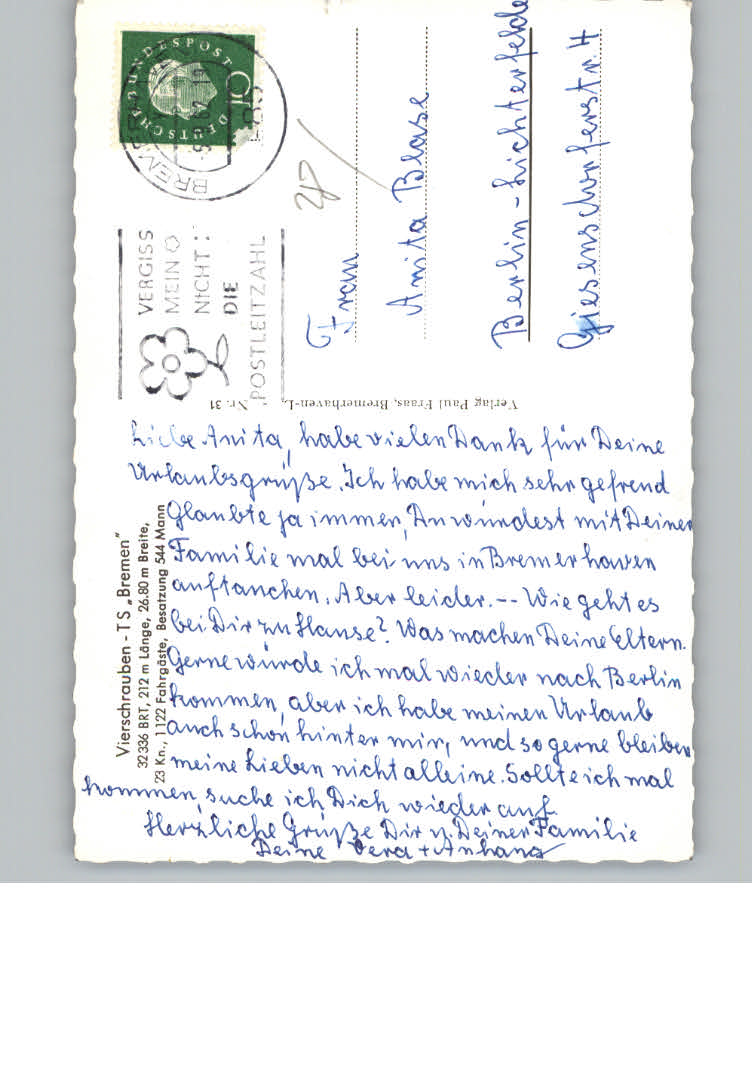 Liebe Anita, habe vielen Dank für Deine
Urlaubsgrüße. Ich habe mich sehr gefreud
Glaubte ja immer, Du würdest mit Deiner
Familie mal bei uns in Bremerhaven
auftauchen. Aber leider. -- Wie geht es
bei Dir zu Hause? Was machen Deine Eltern.
Gerne würde ich mal wieder nach Berlin
kommen, aber ich habe meinen Urlaub
auch schon hinter mir, und so gerne bleiben
meine Lieben nicht alleine. Sollte ich mal
kommen, suche ich Dich wieder auf.
Herzliche Grüße Dir u. Deiner Familie
Deine Vera + Anhang
Vierschrauben - TS „Bremen"
32336 BRT, 212 m Länge, 26.80 m Breite,
23 Kn., 1122 Fahrgäste, Besatzung 544 Mann
Verlag Paul Fraas, Bremerhaven-L., Nr. 31
Frau
Anita Blase
Berlin-Lichterfelde
Giesensdorferstr. 4
VERGISS
MEIN
NICHT:
DIE
POSTLEITZAHL
DEUTSCHE BUNDESPOST
10